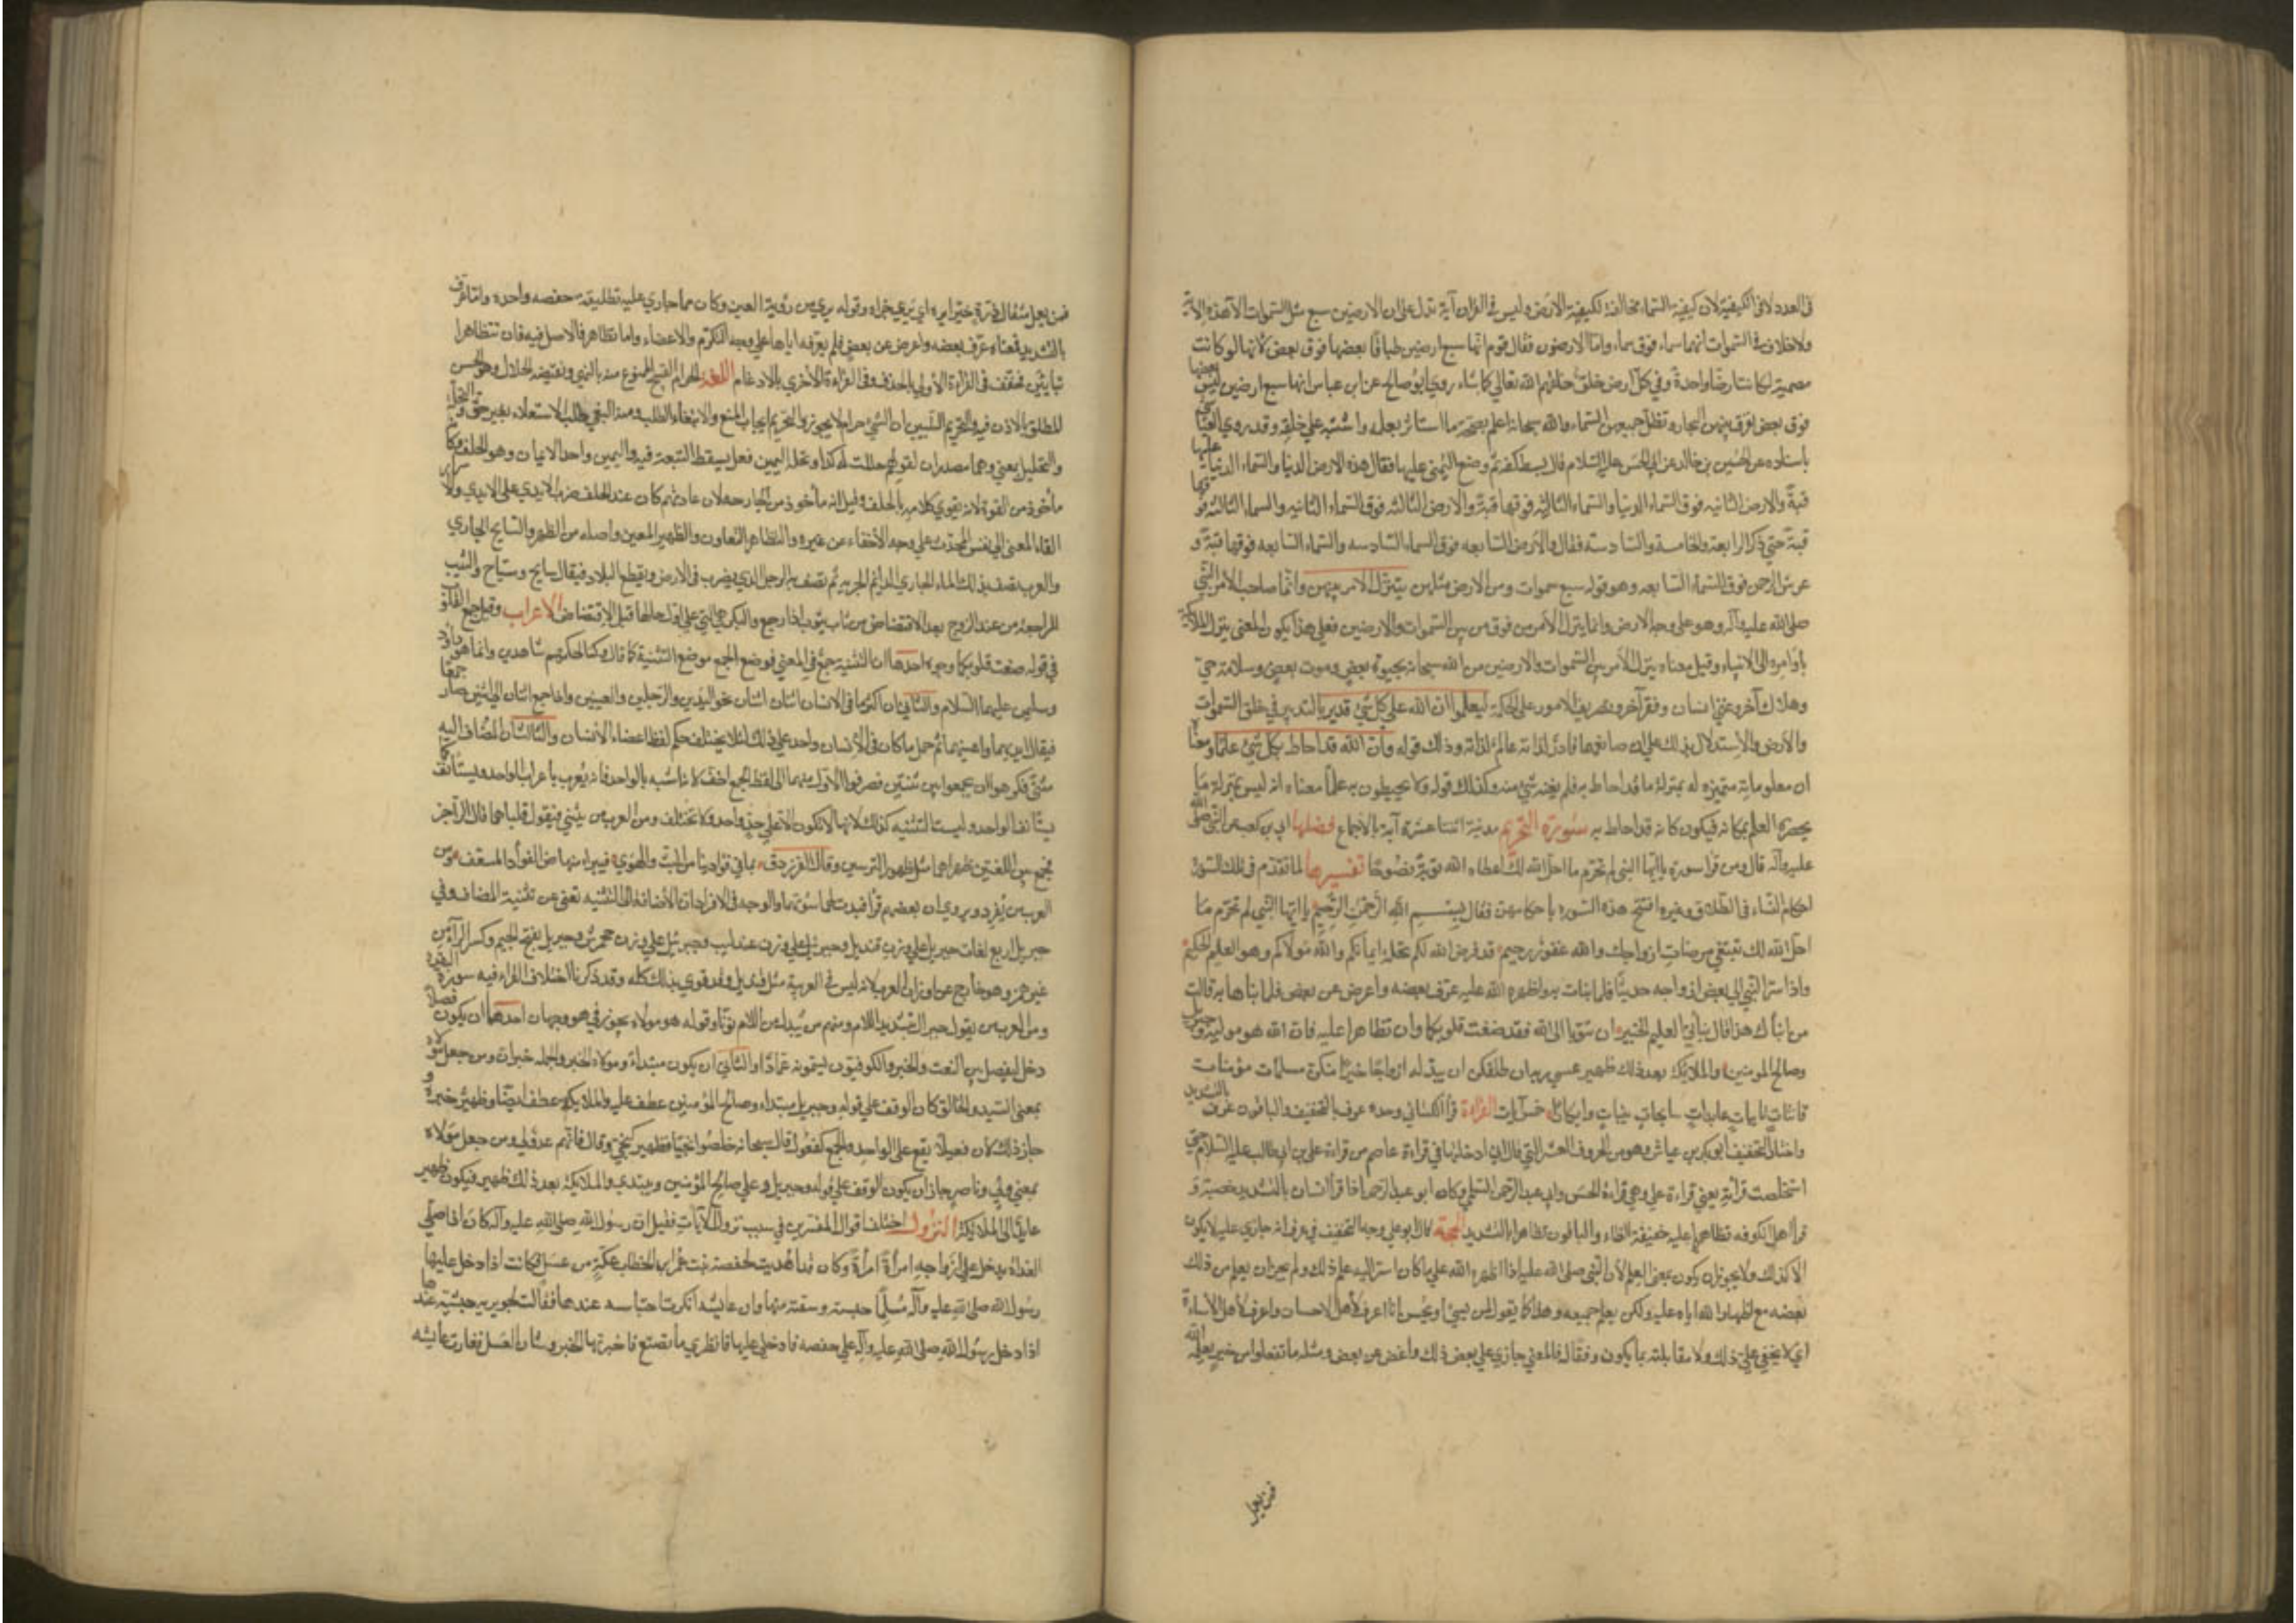 في العدد لا في الكيفية لان كيفية السماء مخالفة لكيفية الارض وليس في القران آية تدل على ان الارضين سبع مثل السموات الا هذه الآية
ولا خلاف في السموات انها سماء فوق سماء واما الارضون فقال قوم انها سبع ارضين طباقا بعضها فوق بعض لانها لو كانت
مصمتة لكانت ارضا واحدة وفي كل ارض خلق خلقهم الله تعالى كما شاء روى ابو صالح عن ابن عباس انها سبع ارضين ليس بعضها
فوق بعض يفرق بينهن البحار وتظل جميعهن السماء والله سبحانه اعلم بصحة ما استأثر بعلمه واشتبه على خلقه وقد روى العياشي
باسناده عن الحسين بن خالد عن ابي الحسن عليه السلام قال بسط كفه ثم وضع اليمنى عليها فقال هذه الارض الدنيا والسماء الدنيا عليها
قبة والارض الثانيه فوق السماء الدنيا والسماء الثانيه فوقها قبة والارض الثالثه فوق السماء الثانيه والسماء الثالثه فوقها
قبة حتى ذكر الرابعة والخامسة والسادسة فقال والارض السابعه فوق السماء السادسه والسماء السابعه فوقها قبة و
عرش الرحمن فوق السماء السابعه وهو قوله سبع سموات ومن الارض مثلهن يتنزل الامر بينهن وانما صاحب الامر النبي
صلى الله عليه وآله وهو على وجه الارض وانما يتنزل الامر من فوق من بين السموات والارضين فعلى هذا يكون المعنى يتنزل الملائكة
باوامره الى الانبياء وقيل معناه يتنزل الامر بين السموات والارضين من الله سبحانه بحيوة بعض وموت بعض وسلامة حي
وهلاك آخر وغنى انسان وفقر آخر وتصريف الامور على الحكمة ليعلموا ان الله على كل شيء قدير بالتدبير في خلق السموات
والارض والاستدلال بذلك على ان صانعها قادر لذاته عالم لذاته وذلك قوله وان الله قد احاط بكل شيء علما ومعناه
ان معلوماته متميزه له بمنزلة ما قد احاط به فلم يفته شيء منه وكذلك قوله ولا يحيطون به علما معناه انه ليس بمنزلة ما
يحصره العلم بمكانه فيكون كانه قد احاط به سورة التحريم مدنية اثنتا عشرة آية بالاجماع فضلها ابي بن كعب عن النبي صلى الله
عليه وآله قال ومن قرأ سورة يا ايها النبي لم تحرم ما احل الله لك اعطاه الله توبة نصوحا تفسيرها لما تقدم في تلك السورة
احكام النساء في الطلاق وغيره افتتح هذه السورة باحكامهن فقال بسم الله الرحمن الرحيم يا ايها النبي لم تحرم ما
احل الله لك تبتغي مرضات ازواجك والله غفور رحيم قد فرض الله لكم تحلة ايمانكم والله مولاكم وهو العليم الحكيم
واذ اسر النبي الى بعض ازواجه حديثا فلما نبات به واظهره الله عليه عرف بعضه واعرض عن بعض فلما نبأها به قالت
من انباك هذا قال نبأني العليم الخبير ان تتوبا الى الله فقد صغت قلوبكما وان تظاهرا عليه فان الله هو موليه وجبريل
وصالح المومنين والملائكة بعد ذلك ظهير عسى ربه ان طلقكن ان يبدله ازواجا خيرا منكن مسلمات مؤمنات
قانتات تايبات عابدات سايحات ثيبات وابكارا خمس آيات القراءة قرأ الكسائي وحده عرف بالتخفيف والباقون عرف بالتشديد
واختار التخفيف ابو بكر بن عياش وهو من الحروف العشر التي قال اني ادخلتها في قراءة عاصم من قراءة علي بن ابي طالب عليه السلام حتى
استخلصت قرأته يعني قراءة علي وهي قراءة الحسن وابي عبد الرحمن السلمي وكان ابو عبد الرحمن اذا قرأ انسان بالتشديد حصبه و
قرأ اهل الكوفه تظاهرا عليه خفيفة الظاء والباقون تظاهرا بالتشديد الحجة قال ابو علي وجه التخفيف في عرف انه جازى عليه لا يكون
الا كذلك ولا يجوز ان يكون بمعنى العلم لان النبي صلى الله عليه اذا اظهره الله على ما كان اسره اليه علم ذلك ولم يجز ان يعلم من ذلك
بعضه مع اظهار الله اياه عليه ولكن يعلم جميعه وهذا كما تقول لمن يسيء او يحسن انا اعرف لاهل الاحسان واعرف لاهل الاساءة
اي لا يخفى علي ذلك ولا مقابلته بما يكون وفقا له فالمعنى جازى على بعض ذلك واغضى عن بعض ومثله ما تفعلوا من خير يعلمه الله
فمن يعمل
فمن يعمل مثقال ذرة خيرا يره اي يرى جزاه وقوله يرى من رؤية العين وكان مما جازى عليه تطليقه حفصه واحدة واما عرف
بالتشديد فمعناه عرف بعضه واعرض عن بعض فلم يعرفه اياها على وجه التكرم والاغضاء واما تظاهرا فالاصل فيه فان تتظاهرا
فخفف في القراءة الاولى بالحذف وفي القراءة الاخرى بالادغام اللغة الحرام القبيح الممنوع منه بالنهي ونقيضه الحلال وهو الحسن
المطلق بالاذن فيه والتحريم التبيين ان الشيء حرام لا يجوز والتحريم ايجاب المنع والابتغاء الطلب ومنه البغي طلب الاستعلاء بغير حق والتحلة
والتحليل بمعنى وهما مصدران لقولهم حللت له كذا وتحلة اليمين فعل يسقط التبعة فيه واليمين واحد الايمان وهو الحلف وكانه
مأخوذ من القوة لانه يقوي كلامه بالحلف وقيل انه مأخوذ من الجارحة لان عادتهم كان عند الحلف ضرب الايدي على الايدي والاسرار
القاء المعنى الى نفس المحدث على وجه الاخفاء عن غيره والتظاهر التعاون والظهير المعين واصله من الظهر والسايح الجاري
والعرب تصف بذلك الماء الجاري الدائم الجريه ثم تصف به الرجل الذي يضرب في الارض ويقطع البلاد فيقال سايح وسياح والثيب
الراجعة من عند الزوج بعد الافتضاض من ثاب يثوب اذا رجع والبكر هي التي على اول حالها قبل الافتضاض الاعراب وقيل جمع القلوب
في قوله صغت قلوبكما وجوه احدها ان التثنية جمع في المعنى فوضع الجمع موضع التثنية كما قال وكنا لحكمهم شاهدين وانما هو داود
وسليمن عليهما السلام والثاني ان اكثر ما في الانسان اثنان اثنان نحو اليدين والرجلين والعينين واذا جمع اثنان الى اثنين صار جمعا
فيقال ايديهما واعينهما ثم حمل ما كان في الانسان واحد على ذلك لئلا يختلف حكم لفظ اعضاء الانسان والثالث ان المضاف اليه
مثنى فكرهوا ان يجمعوا بين تثنيتين فصرفوا الاول منهما الى لفظ الجمع لان لفظ الجمع اخف لانه اشبه بالواحد فانه يعرب باعراب الواحد ويستأنف كما
يستأنف الواحد وليست التثنيه كذلك لانها لا تكون الا على حد واحد ولا تختلف ومن العرب من يثني فيقول قلباهما قال الراجز
فجمع بين اللغتين ظهراهما مثل ظهور الترسين وقال الفرزدق بما في فؤادينا من البث والهوى فيبرأ منهاض الفؤاد المسقف ومن
العرب من يفرد ويروى ان بعضهم قرأ فبدت لهما سوءتهما والوجه في الافراد ان الاضافة الى التثنيه تغني عن تثنية المضاف وفي
جبريل اربع لغات جبريل على وزن قنديل وجبرئيل على وزن عندليب وجبرئل على وزن جحمرش وجبريل بفتح الجيم وكسر الراء من
غير همز وهو خارج عن اوزان العرب لانه ليس في العربية مثل قنديل وقد قرئ بذلك كله وقد ذكرنا اختلاف القراء فيه سورة البقرة
ومن العرب من يقول جبرال بتشديد اللام ومنهم من يبدل من اللام نونا وقوله هو مولاه يجوز في هو وجهان احدهما ان يكون فصلا
دخل ليفصل بين النعت والخبر والكوفيون يسمونه عمادا والثاني ان يكون مبتداء ومولاه الخبر والجملة خبر ان ومن جعل مولاه
بمعنى السيد والخالق كان الوقف على قوله وجبريل مبتداء وصالح المؤمنين عطف عليه والملائكة عطف ايضا وظهير خبره و
جاز ذلك لان فعيلا يقع على الواحد والجمع كفعول قال سبحانه خلصوا نجيا فظهير كنجي وقال فانهم عدو لي ومن جعل مولاه
بمعنى ولي وناصر جاز ان يكون الوقف على قوله وجبريل وعلى صالح المؤمنين ويبتدي والملائكة بعد ذلك ظهير فيكون ظهير
عايدا الى الملائكة النزول اختلف اقوال المفسرين في سبب نزول الآيات فقيل ان رسول الله صلى الله عليه وآله كان اذا صلى
الغداة يدخل على ازواجه امرأة امرأة وكان قد اهديت لحفصة بنت عمر ابن الخطاب عكة من عسل فكانت اذا دخل عليها
رسول الله صلى الله عليه وآله مسلما حبسته وسقته منها وان عايشه انكرت احتباسه عندها فقالت لجويرية حبشية عندها
اذا دخل رسول الله صلى الله عليه وآله على حفصه فادخلي عليها فانظري ما تصنع فاخبرتها الخبر وشان العسل فغارت عايشه